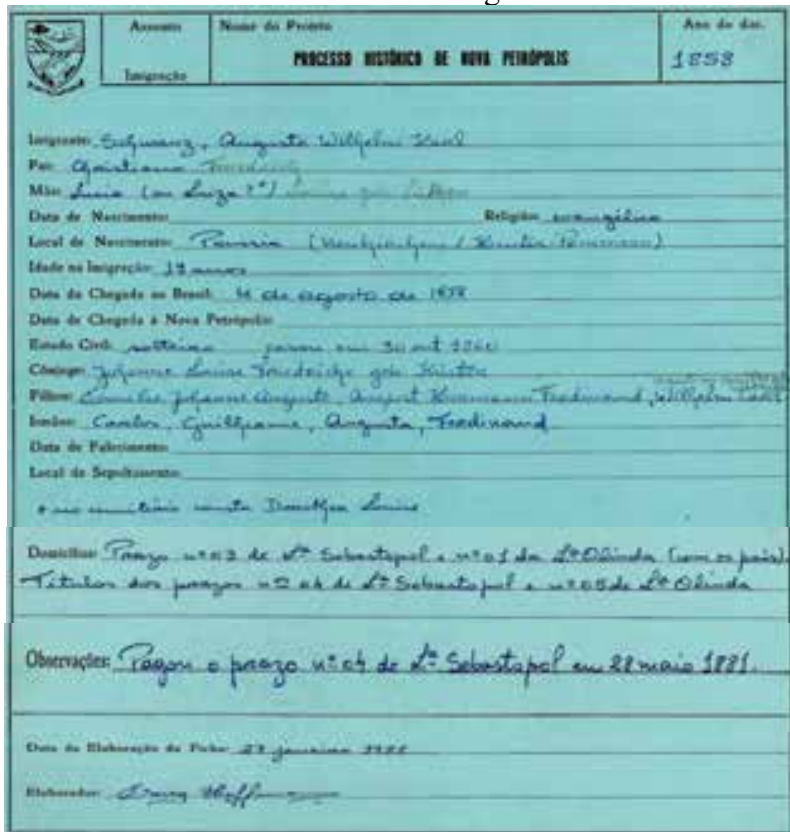 Assunto
Imigração
Nome do Projeto
PROCESSO HISTÓRICO DE NOVA PETRÓPOLIS
Ano do doc.
1858
Imigrante: Schwarz, Augusto Wilhelm Karl
Pai: Christiano Friedrich
Mãe: Lucia (ou Luiza?*) Louise geb.
Data de Nascimento: Religião: evangélica
Local de Nascimento:
Idade na Imigração: 19 anos
Data da Chegada ao Brasil: de agosto de 1858
Data de Chegada à Nova Petrópolis:
Estado Civil: solteiro casou em 30 out 1860
Cônjuge: Johanne Luise Friedericke geb.
Filhos: Johanne Auguste, August Hermann Ferdinand, Wilhelm
Irmãos: Carlos, Guilherme, Augusta, Ferdinand
Data de Falecimento:
Local de Sepultamento:
* no consta Dorothea Louise
Domicílio: Prazo nº 03 de Lª Sebastopol e nº 01 da Lª Olinda (com os pais).
Títulos dos prazos nº 04 de Lª Sebastopol e nº 05 de Lª Olinda
Observações: Pagou o prazo nº 04 de Lª Sebastopol em 28 maio 1881.
Data da Elaboração da Ficha: 27 janeiro
Elaborador: